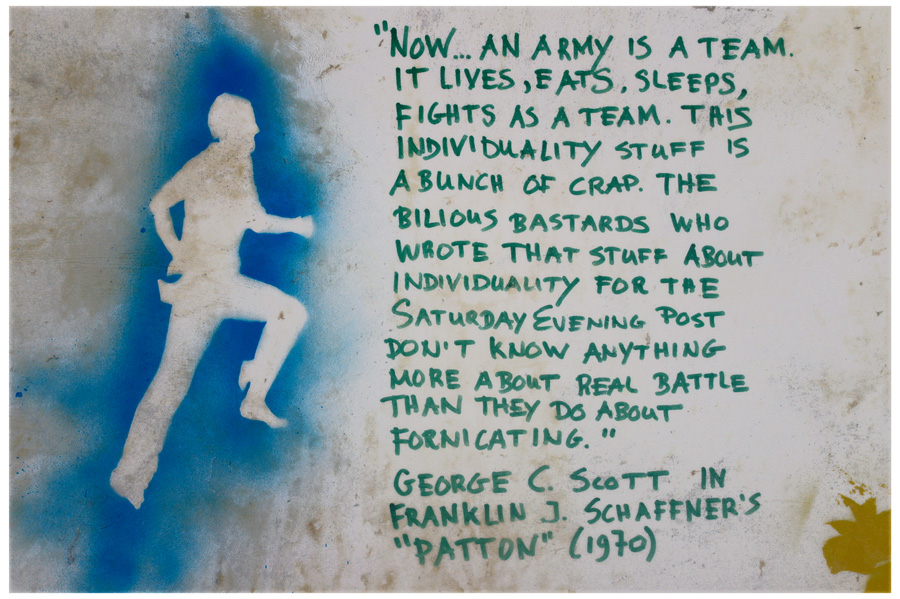 "NOW... AN ARMY IS A TEAM.
IT LIVES, EATS, SLEEPS,
FIGHTS AS A TEAM. THIS
INDIVIDUALITY STUFF IS
A BUNCH OF CRAP. THE
BILIOUS BASTARDS WHO
WROTE THAT STUFF ABOUT
INDIVIDUALITY FOR THE
SATURDAY EVENING POST
DON'T KNOW ANYTHING
MORE ABOUT REAL BATTLE
THAN THEY DO ABOUT
FORNICATING."
GEORGE C. SCOTT IN
FRANKLIN J. SCHAFFNER'S
"PATTON" (1970)